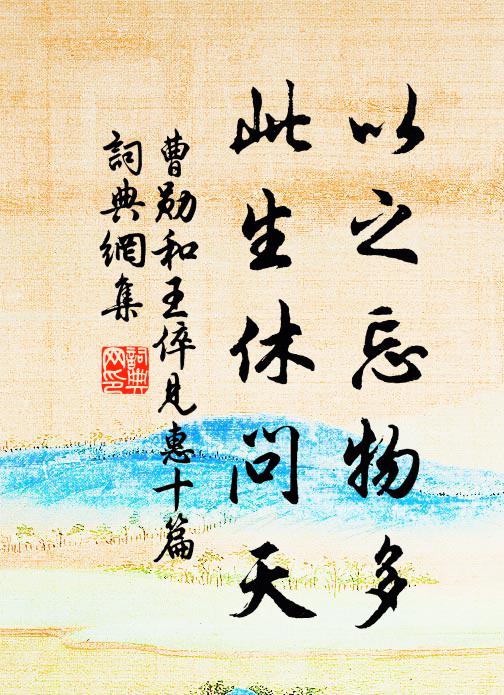 以之忘物多
此生休問天
曹勛和王倅見惠十篇
詞典網集
詞典網印